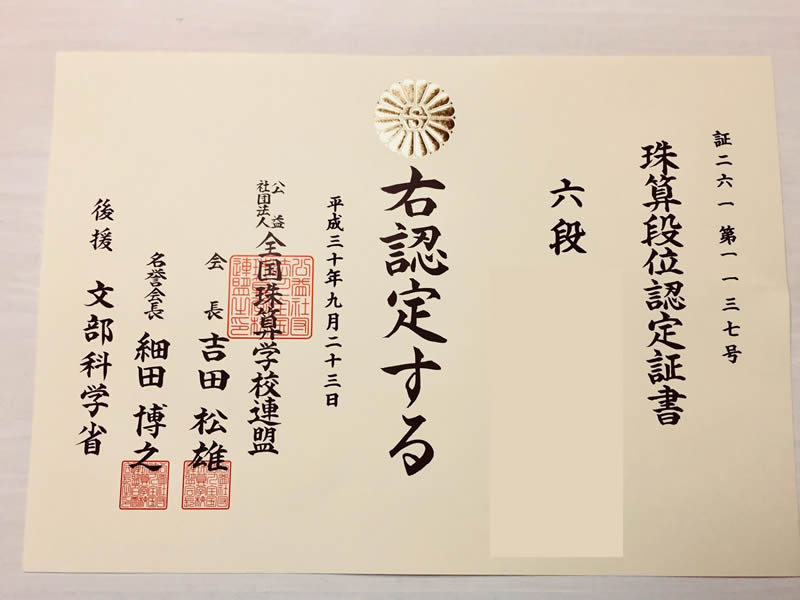 証二六一 第一一三七号
珠算段位認定証書
六段
右認定する
平成三十年九月二十三日
公益社団法人 全国珠算学校連盟
会長 吉田松雄
名誉会長 細田博之
後援 文部科学省